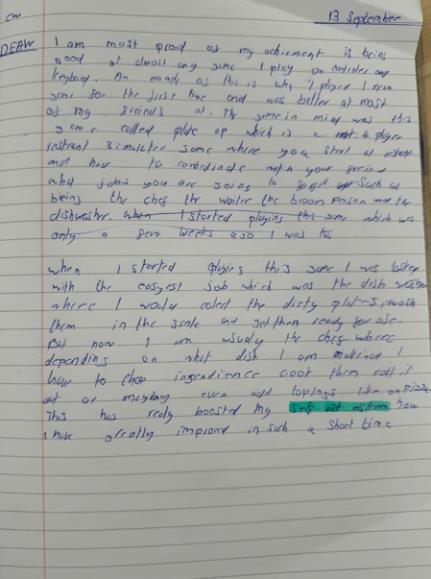 CW 13 September
DEAW I am most proud of my achiement is being
good at almost any game I play on controler and
keyboard. An of this is when I played a new
game for the first time and was better at most
of my friends at. The game in mind was this
game called plate up which is a player
restrant simulater game where you start at
and have to coordinate with your freind
what jobs you are going to such as
being the chef the waiter the broom person and the
dishwasher. when I started playing this game which was
only a few weeks ago I was
when I started playing this game I was
with the easyest job which was the dish
where I would colect the dirty wash
them in the sink and get them ready for use.
But now I am usually the chef where
depending on what dish I am making I
have to chop ingredience cook them roll it
out or maybay even add toppings like on pizza
This has realy boosted my self how
I have greatly improved in such a short time